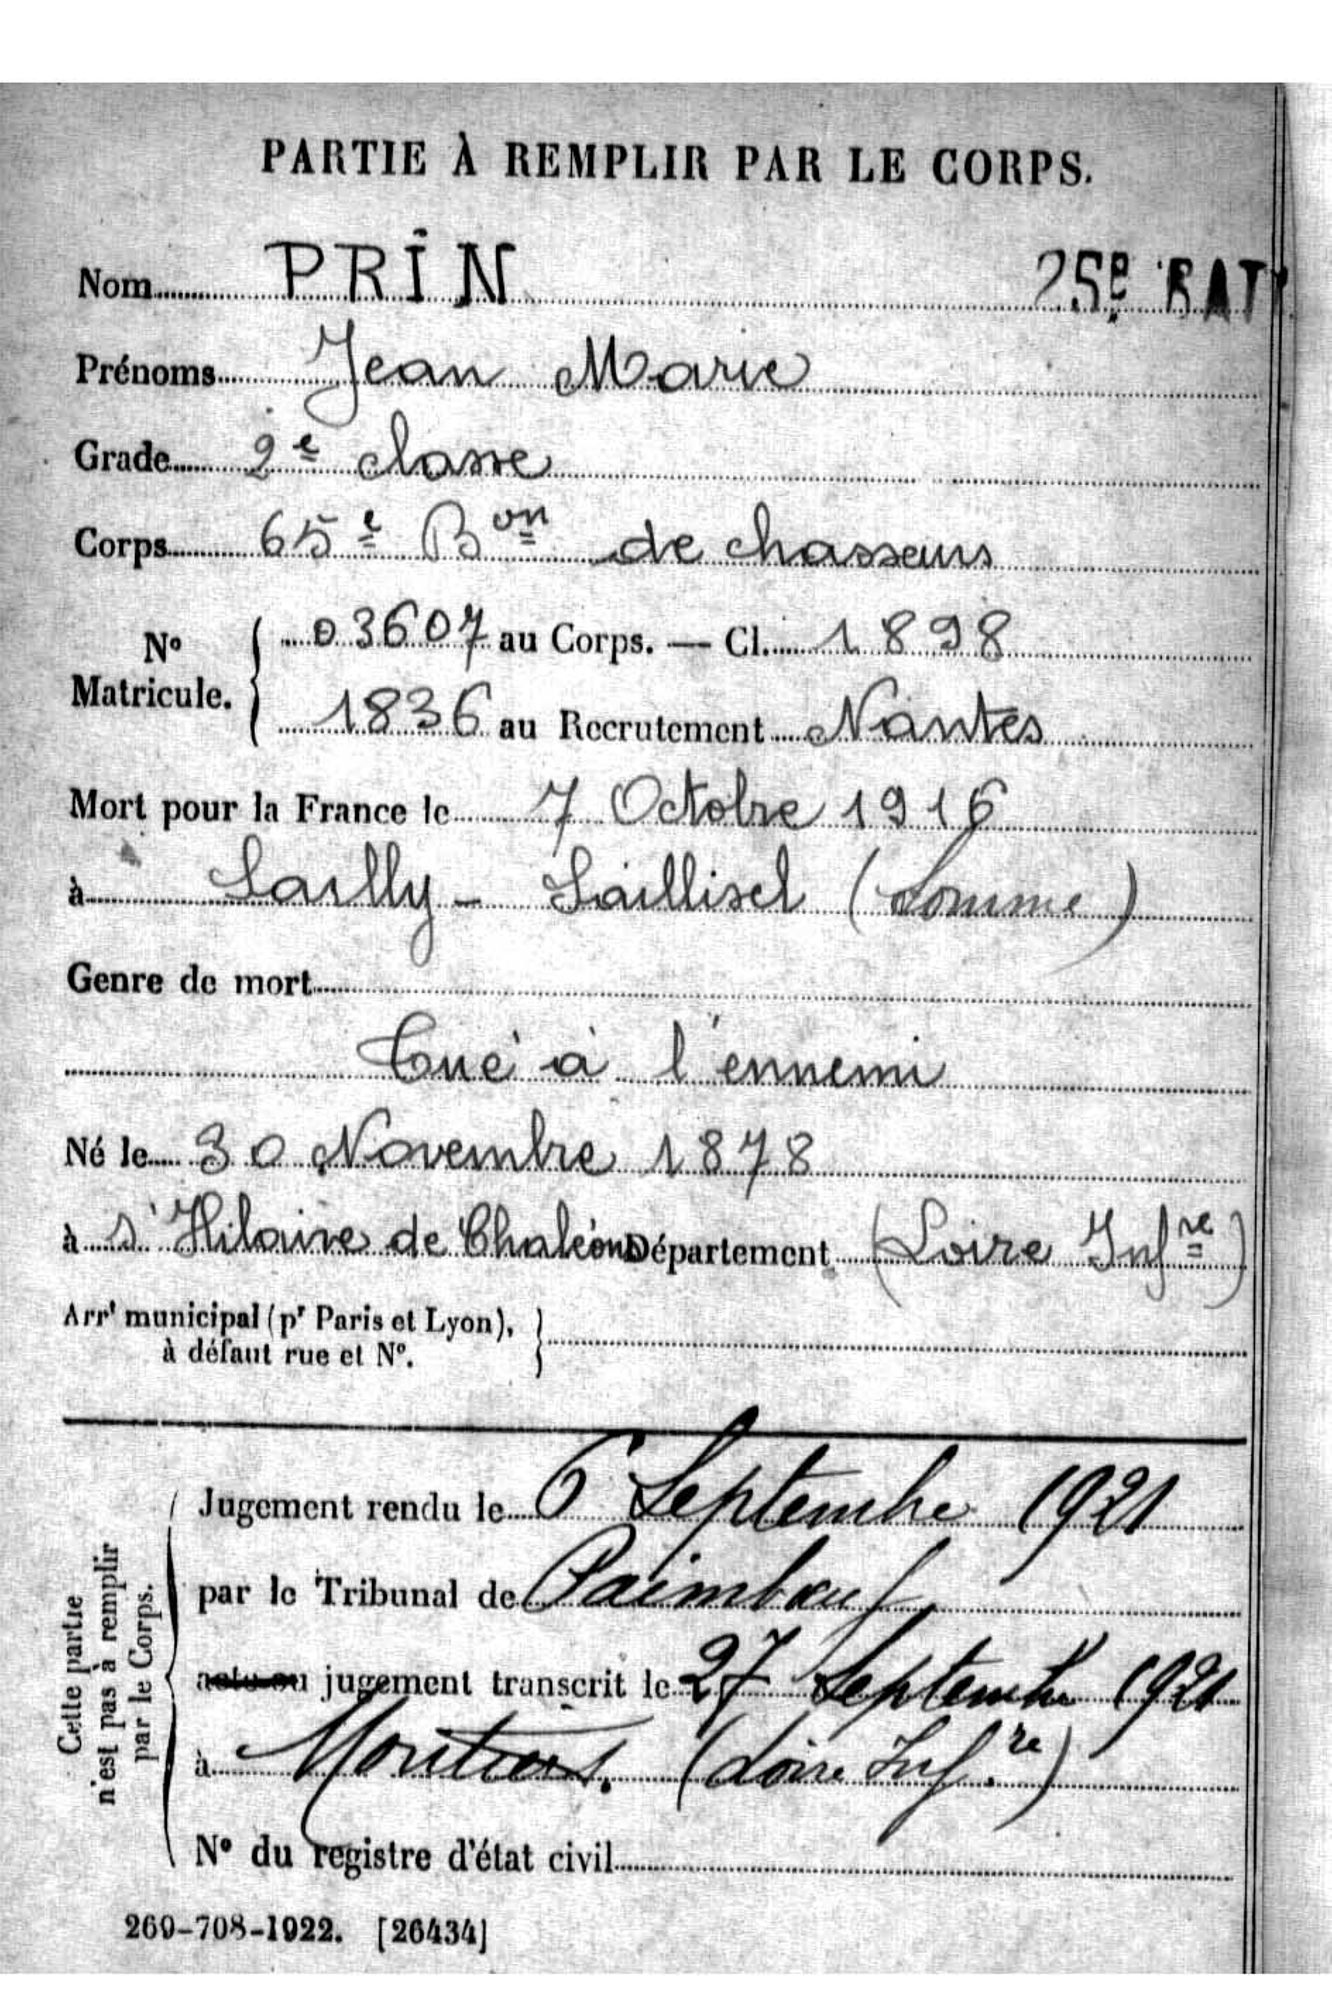 PARTIE À REMPLIR PAR LE CORPS.
Nom PRIN 25e BAT
Prénoms Jean Marie
Grade 2e classe
Corps 65e Bon de chasseurs
No Matricule. { 03607 au Corps. — Cl. 1898
1836 au Recrutement Nantes
Mort pour la France le 7 Octobre 1916
à Sailly - Saillisel (Somme)
Genre de mort
Tué à l'ennemi
Né le 30 Novembre 1878
à St Hilaire de Chaléons Département (Loire Infre)
Arrt municipal (pr Paris et Lyon), }
à défaut rue et No.
Cette partie
n'est pas à remplir
par le Corps.
Jugement rendu le 6 Septembre 1921
par le Tribunal de Paimboeuf
acte ou jugement transcrit le 27 Septembre 1921
à Moutiers. (Loire Inf.re)
No du registre d'état civil
269-708-1922. [26434]